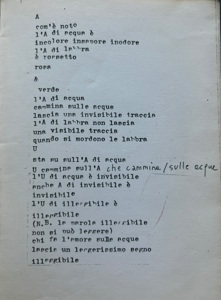 A
com'è noto
l'A di acqua è
incolore insapore inodore
l'A di labbra
è rossetto
rosa
A
verde
l'A di acqua
cammina sulle acque
lascia una invisibile traccia
l'A di labbra non lascia
una visibile traccia
quando si mordono le labbra
U
sta su sull'A di acque
U cammina sull'A che cammina/sulle acque
l'U di acqua è invisibile
anche A di invisibile è
invisibile
l'U di illeggibile è
illeggibile
(N.B. le parole illeggibile
non si può leggere)
chi fa l'amore sulle acque
lascia un leggerissimo segno
illeggibile